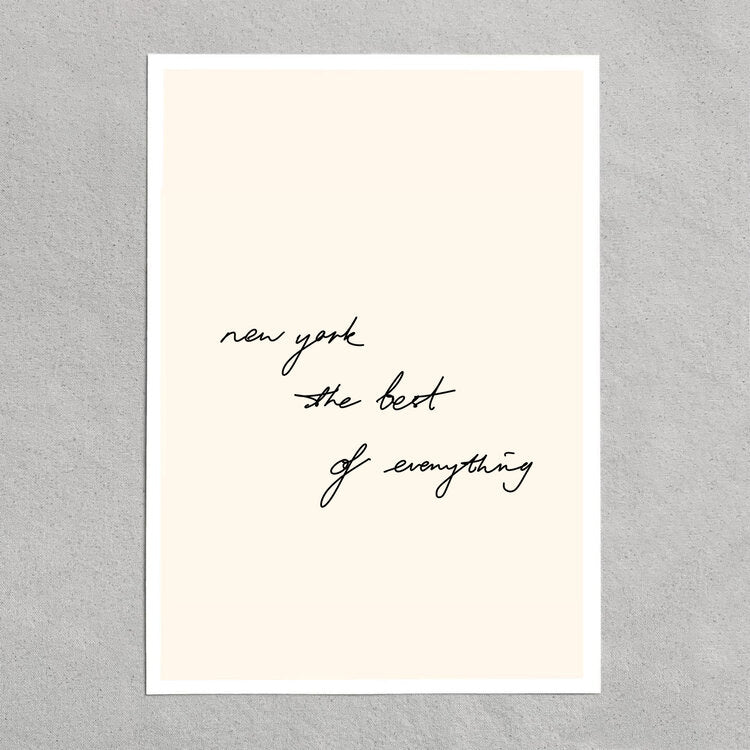 new york
the best
of everything